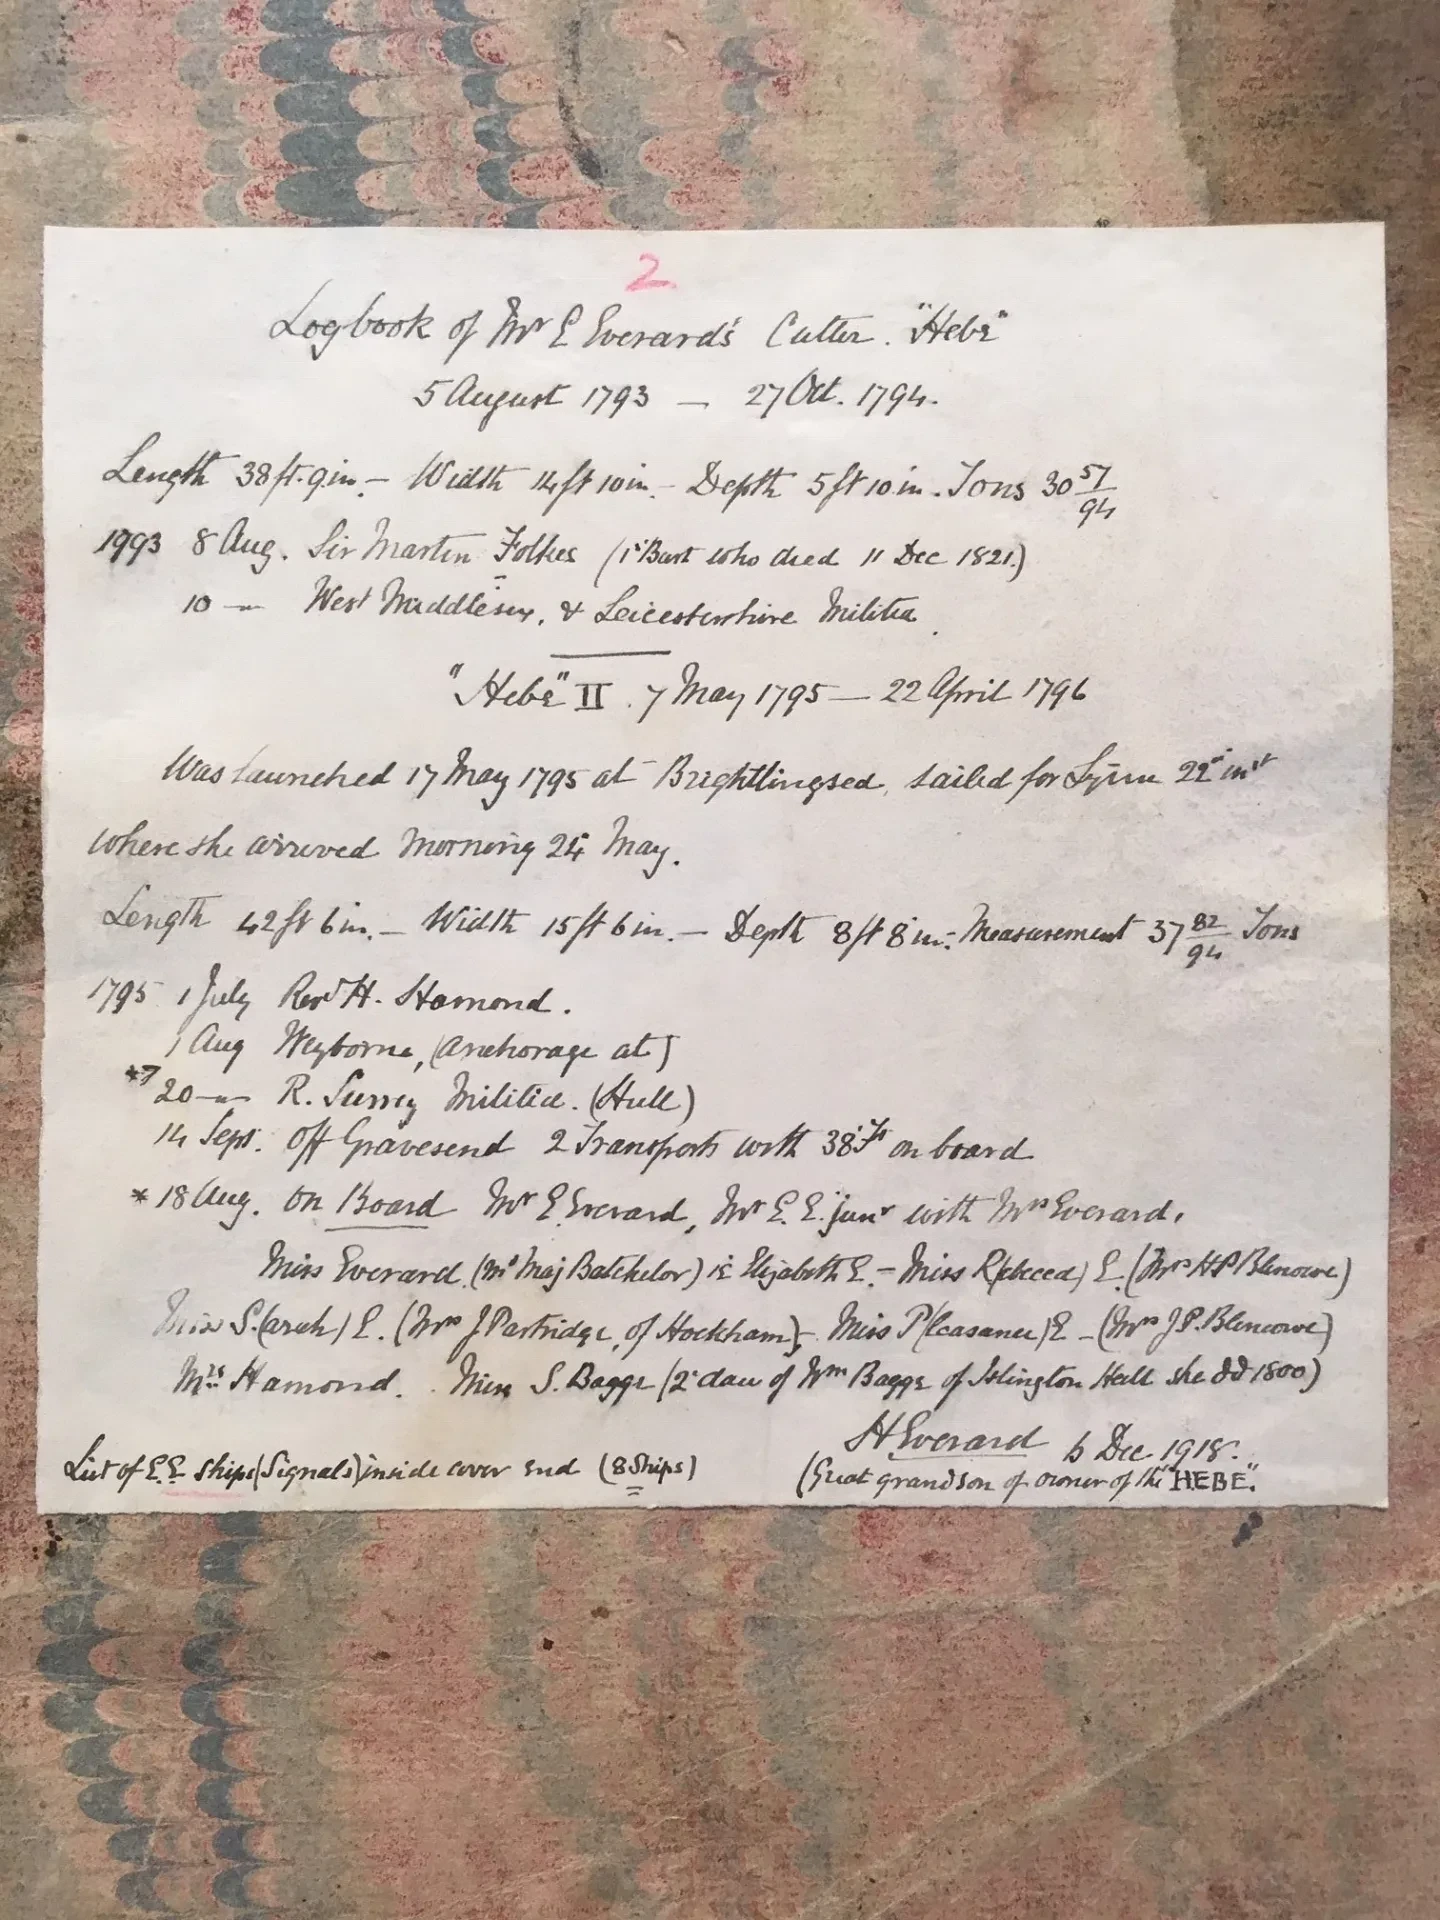 2
Logbook of Mr E Everard's Cutter. "Hebe"
5 August 1793 — 27 Oct. 1794.
Length 38 ft. 9 in. – Width 14 ft 10 in. – Depth 5 ft 10 in. Tons 30 57/94
1993 8 Aug. Sir Martin Folkes (1st Bart who died 11 Dec 1821.)
10 — West Middlesex, & Leicestershire Militia.
"Hebe" II . 7 May 1795 — 22 April 1796
Was launched 17 May 1795 at Brightlingsed, sailed for Lynn 22d inst
where she arrived morning 24 May.
Length 42 ft 6 in. – Width 15 ft 6 in. – Depth 8 ft 8 in: Measurement 37 82/94 Tons
1795 1 July Revd H. Hamond.
1 Aug Weyborne, (anchorage at)
*7 20 — R. Surrey Militia. (Hull)
14 Sept. off Gravesend 2 Transports with 38th on board
* 18 Aug. On Board Mr E. Everard, Mr E. E. junr with Mrs Everard,
Miss Everard (Mrs Maj Batchelor) ie Elizabeth E. – Miss R(ebecca) E. (Mrs H P Blencowe)
Miss S.(arah) E. (Mrs J Partridge, of Hockham), Miss P(leasance) E – (Mrs J. P. Blencowe)
Mrs Hamond. Miss S. Bagge (2d dau of Wm Bagge of Islington Hall she dd 1800)
H. Everard 6 Dec 1918.
List of E. E. ships (Signals) inside cover end (8 Ships)
(Great grandson of owner of the "HEBE."